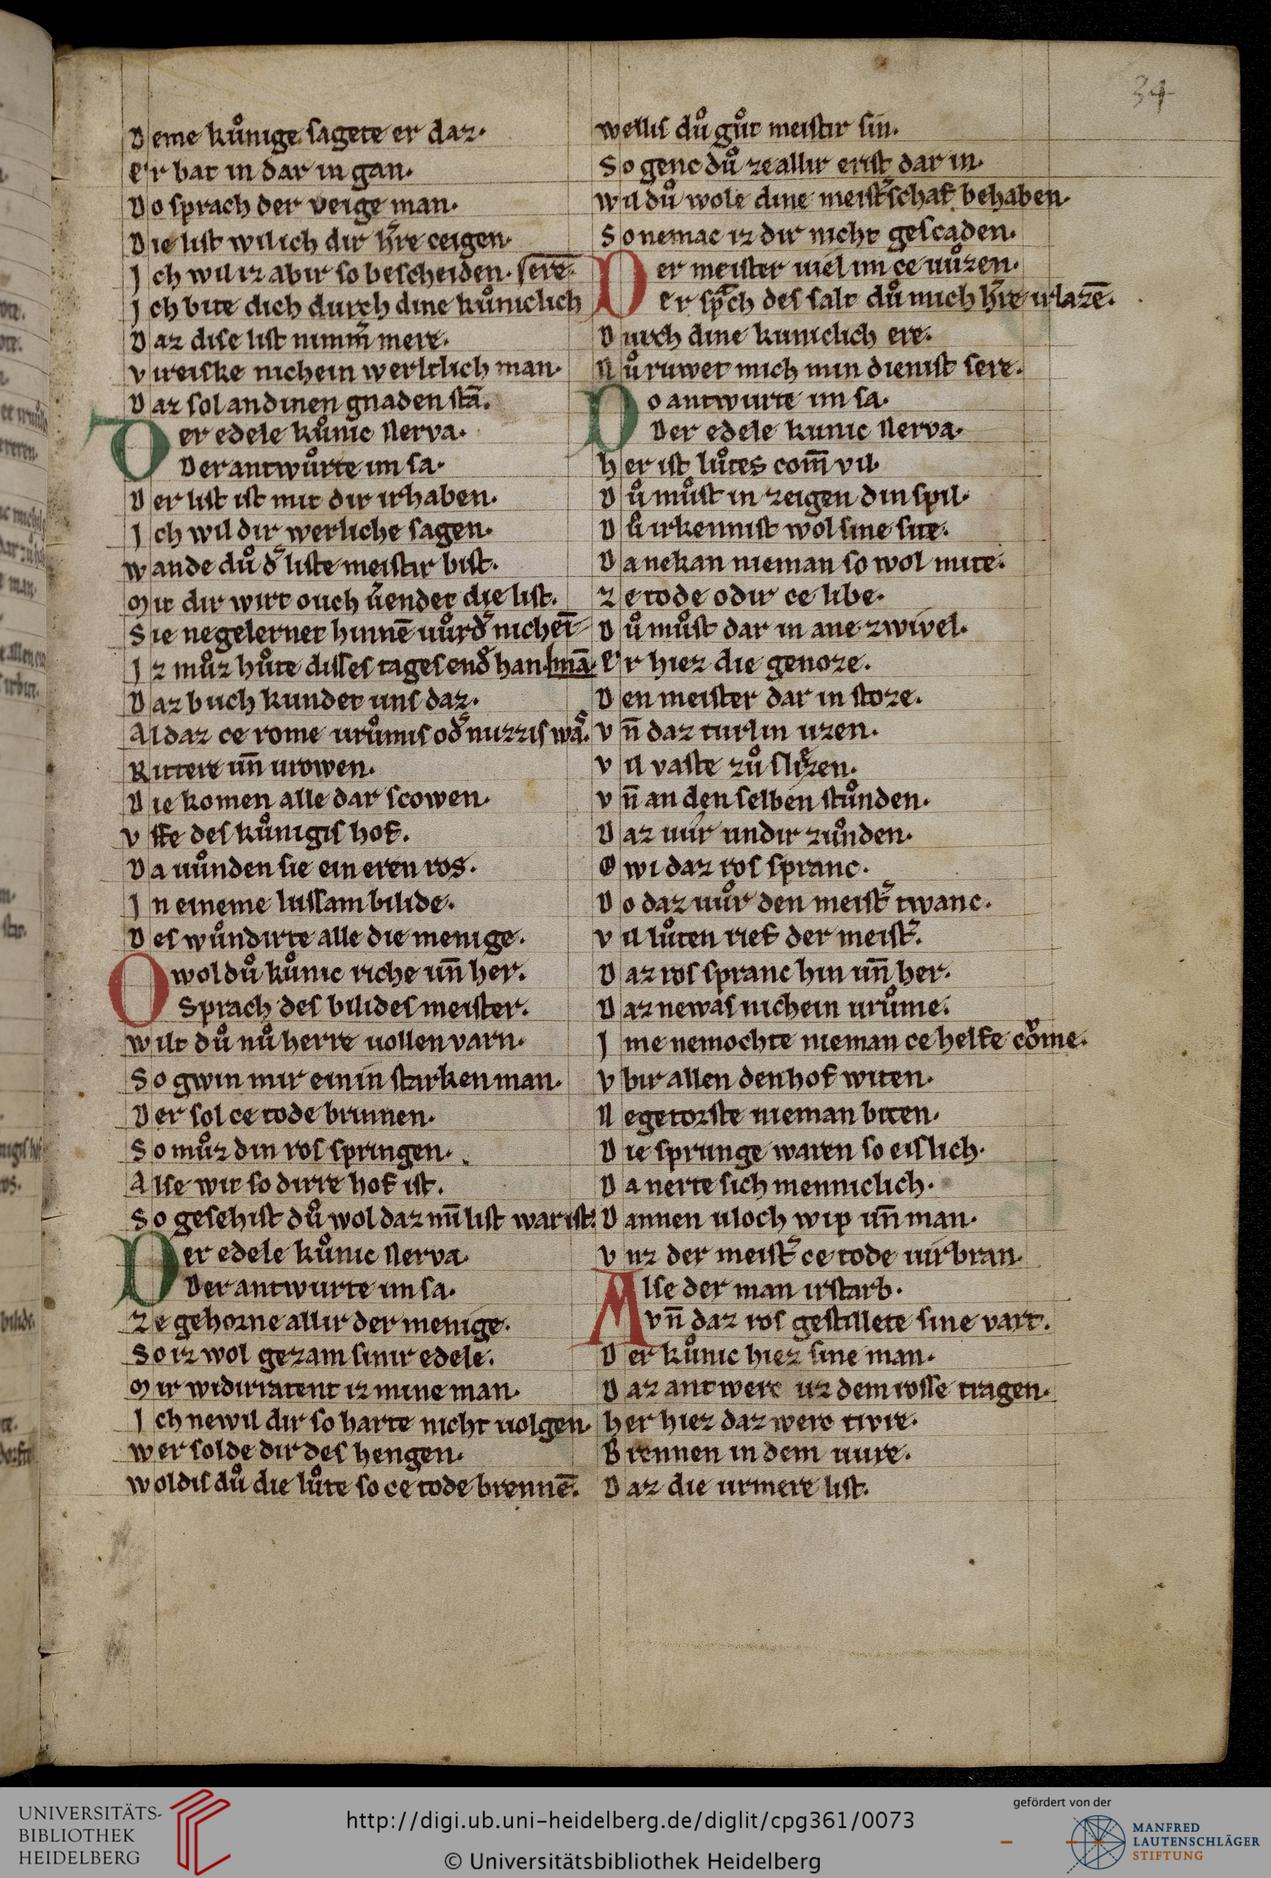 34
D eme kůnige sagete er daz·
E r bat in dar in gan.
D o sprach der veige man·
D ie list wil ich dir h̄re ceigen·
J ch wil iz abir so bescheiden· sere·
J ch bite dich durch dine kůniclich
D az dise list nimm̄ mere·
v ireiske nichein werltlich man·
D az sol an dinen gnaden stā.
D er edele kůnic Nerva·
Der antwůrte im sa·
D er list ist mit dir irhaben.
J ch wil dir werliche sagen.
w ande dů d̓ liste meistir bist.
M it dir wirt ouch v̄endet die list.
S ie negelernet hinnē vůrd̓ nichēī
J z můz hůte disses tages end̓ han. mā·
D az buch kundet uns daz·
A l daz ce rome vrůmis od̓ nuzzis wa͛.
R ittere uñ vrowen.
D ie komen alle dar scowen·
v ffe des kůnigis hof.
D a vůnden sie ein eren ros.
J n eineme lussam bilide.
D es wůndirte alle die menige.
O wol dů kůnic riche uñ her.
Sprach des bilides meister.
w ilt dů nů herre vollen varn·
S o gwin mir ein in starken man.
D er sol ce tode brinnen·
S o můz din ros springen·
A lse wit so dirre hof ist.
S o gesehist dů wol daz mı̄ list war ist.
D er edele kůnic Nerva
Der antwurte im sa.
Z e gehorne allir der menige.
S o iz wol gezam sinir edele.
M ir widirratent iz mine man·
J ch newil dir so harte nicht volgen·
w er solde dir des hengen·
w oldis dů die lůte so ce tode brennē.
wellis dů gůt meistir sin.
S o genc dů ze allir erist dar in·
w il dů wole dine meist̓schaf behaben·
S o nemac iz dir nicht gescaden·
D er meister viel im ce vůzen·
Er sp̄ch des salt dů mich h̄re irlazē.
D urch dine kuniclich ere·
N ů ruwet mich min dienist sere.
D o antwurte im sa·
Der edele kunic Nerva·
h er ist lůtes com̄ vil·
D ů můst in zeigen din spil·
D ů irkennist wol sine site·
D a nekan nieman so wol mite·
Z e tode odir ce libe·
D ů můst dar in ane zwivel.
E r hiez die genoze.
D en meister dar in stoze.
v ñ daz turlin uzen.
v il vaste zů slizen.
v ñ an den selben stůnden.
D az vůr undir zůnden.
O wi daz ros spranc.
D o daz vůr den meist̓ twanc.
v il lůten rief der meist̓.
D az ros spranc hin uñ her.
D az newas nichein vrůme.
J me nemochte nieman ce helfe come·
v bir allen den hof witen·
N egetorste nieman biten.
D ie sprunge waren so eislich·
D a nerte sich menniclich·
D annen vloch wip uñ man·
v nz der meist̓ ce tode virbran·
A lse der man irstarb·
vñ daz ros gestillete sine vart.
D er kůnic hiez sine man·
D az antwerc uz dem rosse tragen·
h er hiez daz werc tivre·
B rennen in dem vure·
D az die irmere list.
UNIVERSITÄTS-
BIBLIOTHEK
HEIDELBERG
http://digi.ub.uni-heidelberg.de/diglit/cpg361/0073
© Universitätsbibliothek Heidelberg
gefördert von der
MANFRED
LAUTENSCHLÄGER
STIFTUNG